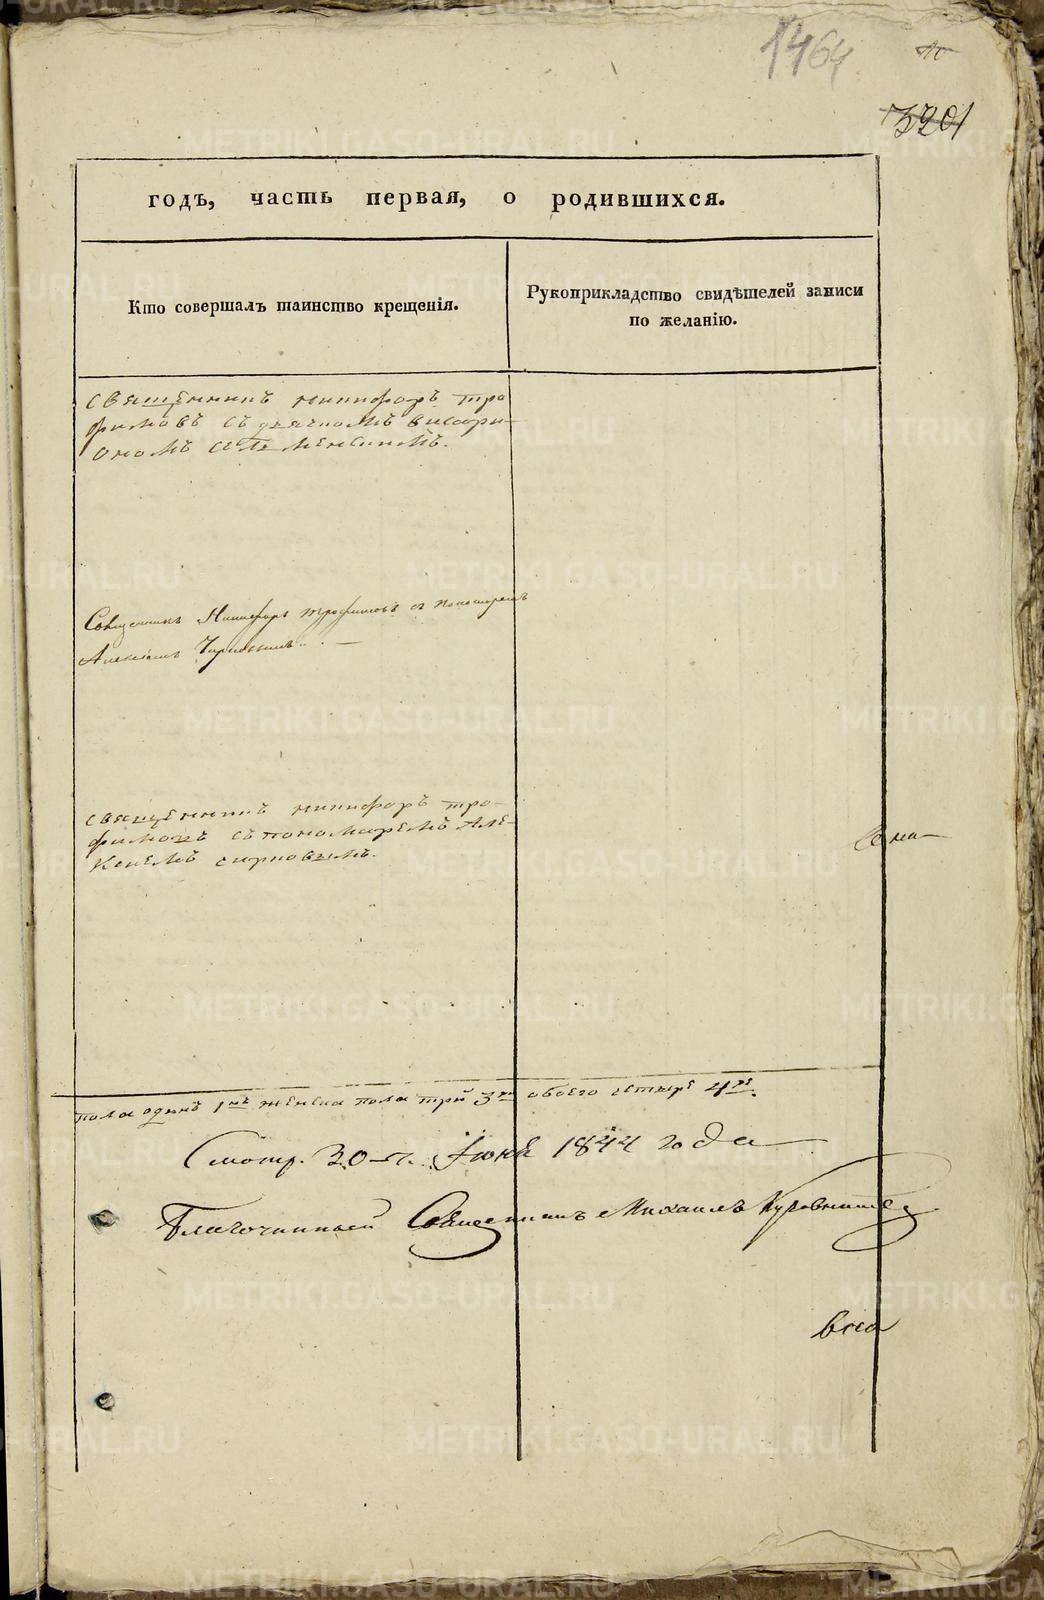 1464
3201
годъ, часть первая, о родившихся.
Кто совершалъ таинство крещенія.
Рукоприкладство свидѣтелей записи
по желанію.
священникъ никифоръ тро
фимовъ съ дьячкомъ висари-
ономъ
Священникъ Никифоръ Трофимовъ съ пономаремъ
Алексѣемъ
священникъ никифоръ тро-
фимовъ съ пономаремъ але-
ксеемъ
пола одинъ 1нъ женска пола три 3ри обоего четыре 4ре.
Смотр. 30-го Іюня 1844 года
Благочинный Священникъ Михаилъ
METRIKI.GASO-URAL.RU